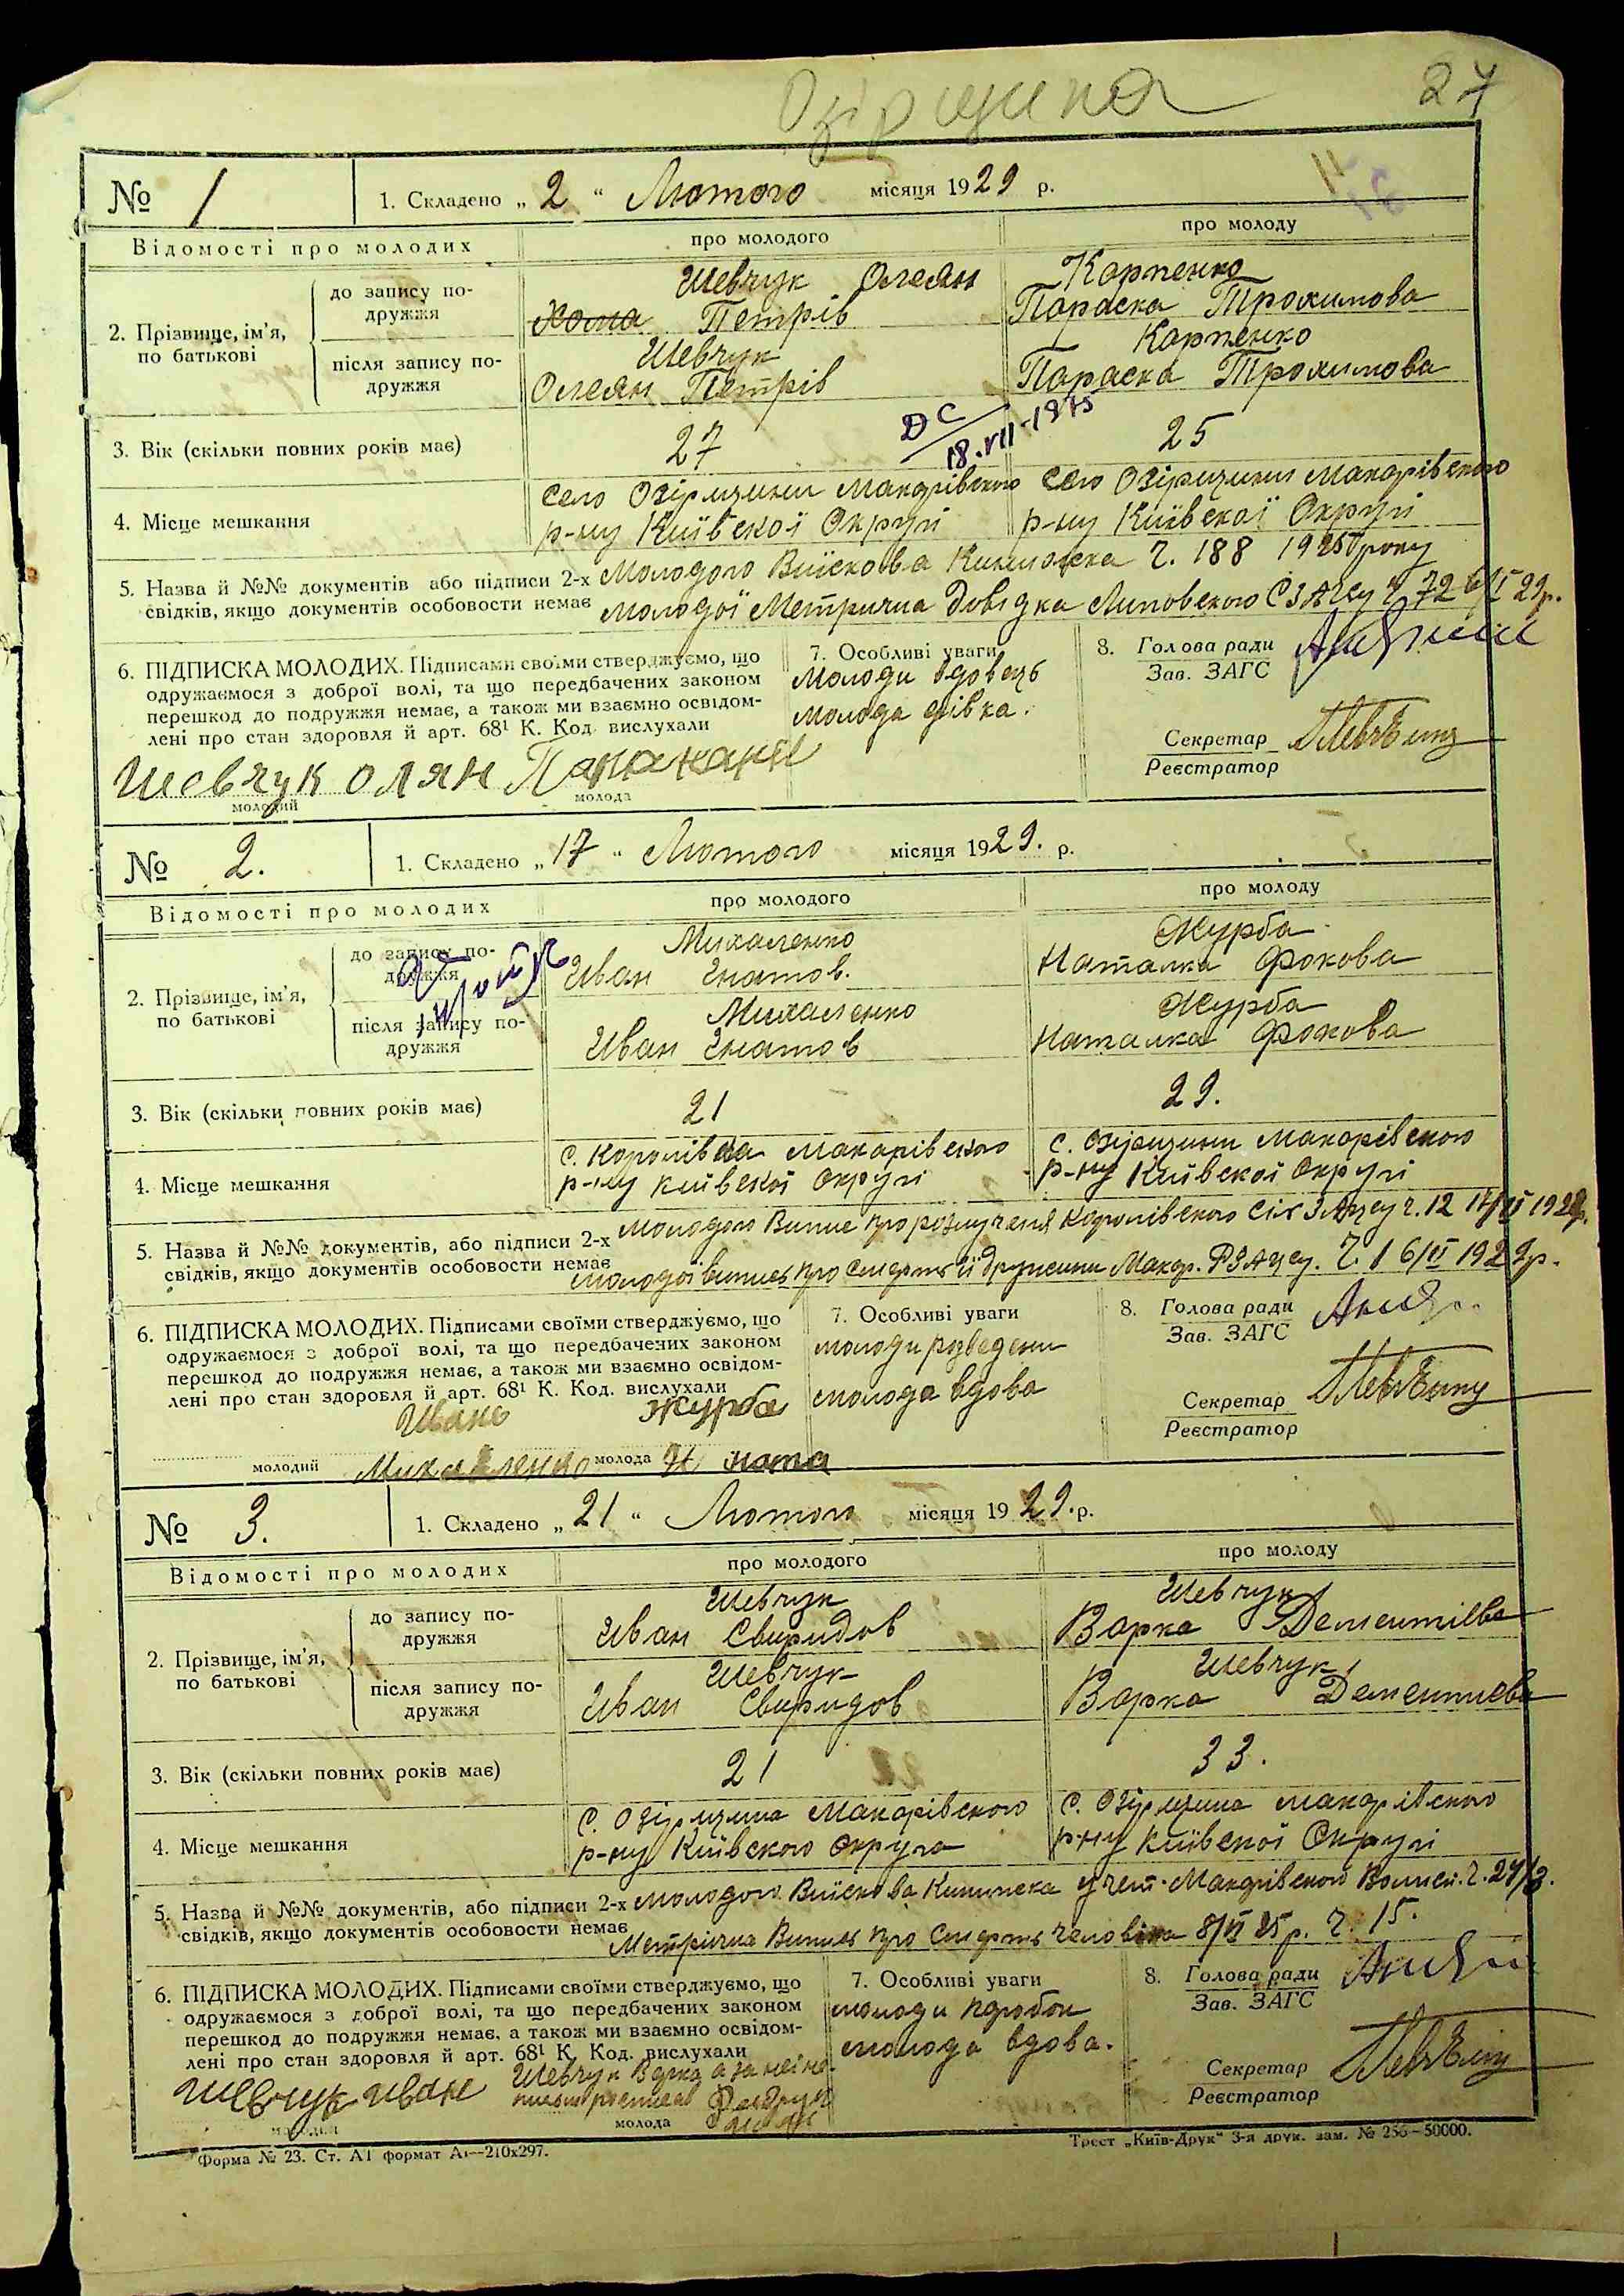 Озірщина
27
№ 1
1. Складено „ 2 “ Лютого місяця 1929 р.
Відомості про молодих
про молодого
про молоду
2. Прізвище, ім’я, по батькові
до запису подружжя
Шевчук Олеян
Хома Петрів
Карпенко
Параска Трохимова
після запису подружжя
Шевчук
Олеян Петрів
Карпенко
Параска Трохимова
3. Вік (скільки повних років має)
27
ДС
18.VII-1975
25
4. Місце мешкання
село Озірщини Макарівского
р-ну Київскої Округі
село Озірщини Макарівского
р-ну Київскої Округі
5. Назва й №№ документів або підписи 2-х
свідків, якщо документів особовости немає
Молодого Війскова Книжка Ч. 188 1925 року
молодої Метрична Довідка Липовского СЗАГСу Ч. 72 29р.
6. ПІДПИСКА МОЛОДИХ. Підписами своїми стверджуємо, що
одружаємося з доброї волі, та що передбачених законом
перешкод до подружжя немає, а також ми взаємно освідом-
лені про стан здоровля й арт. 68¹ К. Код. вислухали
Шевчук Олян
молодий
молода
7. Особливі уваги
Молоди вдовець
молода дівка.
8. Голова ради
Зав. ЗАГС
Секретар
Реєстратор
№ 2.
1. Складено „ 17 “ Лютого місяця 1929. р.
Відомості про молодих
про молодого
про молоду
2. Прізвище, ім’я, по батькові
до запису подружжя
Михаленко
Иван Гнатов.
Журба
Наталка Фокова
після запису подружжя
Михаленко
Иван Гнатов
Журба
Наталка Фокова
3. Вік (скільки повних років має)
21
29.
4. Місце мешкання
с. Королівка Макарівского
р-ну київскої Округі
с. Озірщини Макарівского
р-ну Київскої Округі
5. Назва й №№ документів, або підписи 2-х
свідків, якщо документів особовости немає
молодого Випис про розлученя Королівского Сіл ЗАгсу Ч. 12
молодої випись про смерть її дружини Макар. РЗАгсу. Ч. 1 6/II 1929р.
6. ПІДПИСКА МОЛОДИХ. Підписами своїми стверджуємо, що
одружаємося з доброї волі, та що передбачених законом
перешкод до подружжя немає, а також ми взаємно освідом-
лені про стан здоровля й арт. 68¹ К. Код. вислухали
Иване
Журба
молодий
Михаленко
молода
ната
7. Особливі уваги
молоди розведени
молода вдова
8. Голова ради
Зав. ЗАГС
Секретар
Реєстратор
№ 3.
1. Складено „ 21 “ Лютого місяця 1929. р.
Відомості про молодих
про молодого
про молоду
2. Прізвище, ім’я, по батькові
до запису подружжя
Шевчук
Иван Свиридов
Шевчук
Варка Дементієва
після запису подружжя
Шевчук
Иван Свиридов
Шевчук
Варка Дементиєва
3. Вік (скільки повних років має)
21
33.
4. Місце мешкання
с. Озірщина Макарівского
р-ну Київского округа
с. Озірщина Макарівского
р-ну Київскої Округі
5. Назва й №№ документів, або підписи 2-х
свідків, якщо документів особовости немає
молодого Війскова Книжска
Метрична Випись про Смерть Чоловіка 8/VI 25 р. Ч. 15.
6. ПІДПИСКА МОЛОДИХ. Підписами своїми стверджуємо, що
одружаємося з доброї волі, та що передбачених законом
перешкод до подружжя немає, а також ми взаємно освідом-
лені про стан здоровля й арт. 68¹ К. Код. вислухали
Шевчук Иване
Шевчук Варка а за неї не
молодий
молода
7. Особливі уваги
молоди паробок
молода вдова.
8. Голова ради
Зав. ЗАГС
Секретар
Реєстратор
Форма № 23. Ст. А1 формат А4—210х297.
Трест „Київ-Друк“ 3-я друк. зам. № 256—50000.